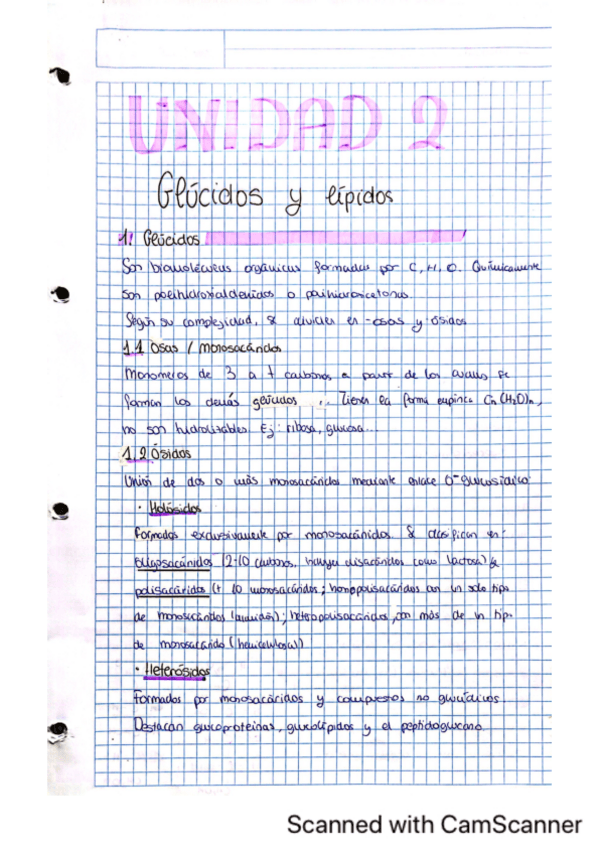 UNIDAD 2
Glúcidos y lípidos
1. Glúcidos
Son biomoléculas orgánicas formadas por C, H, O. Químicamente
son polihidroxialdehídos o polihidroxicetonas.
Según su complejidad, se dividen en -osas y -ósidos
1.1 Osas / monosacáridos
Monómeros de 3 a 7 carbonos a partir de los cuales se
forman los demás glúcidos. Tienen la forma empírica Cn(H2O)n,
no son hidrolizables. Ej: ribosa, glucosa...
1.2 Ósidos
Unión de dos o más monosacáridos mediante enlace O-glucosídico
· Holósidos
Formados exclusivamente por monosacáridos. Se clasifican en:
oligosacáridos (2-10 carbonos, incluyen disacáridos como lactosa) &
polisacáridos (+ 10 monosacáridos; homopolisacáridos con un solo tipo
de monosacáridos (almidón); heteropolisacáridos, con más de un tipo
de monosacárido (hemicelulosa))
· Heterósidos
Formados por monosacáridos y compuestos no glucídicos.
Destacan glucoproteínas, glucolípidos y el peptidoglucano.
Scanned with CamScanner